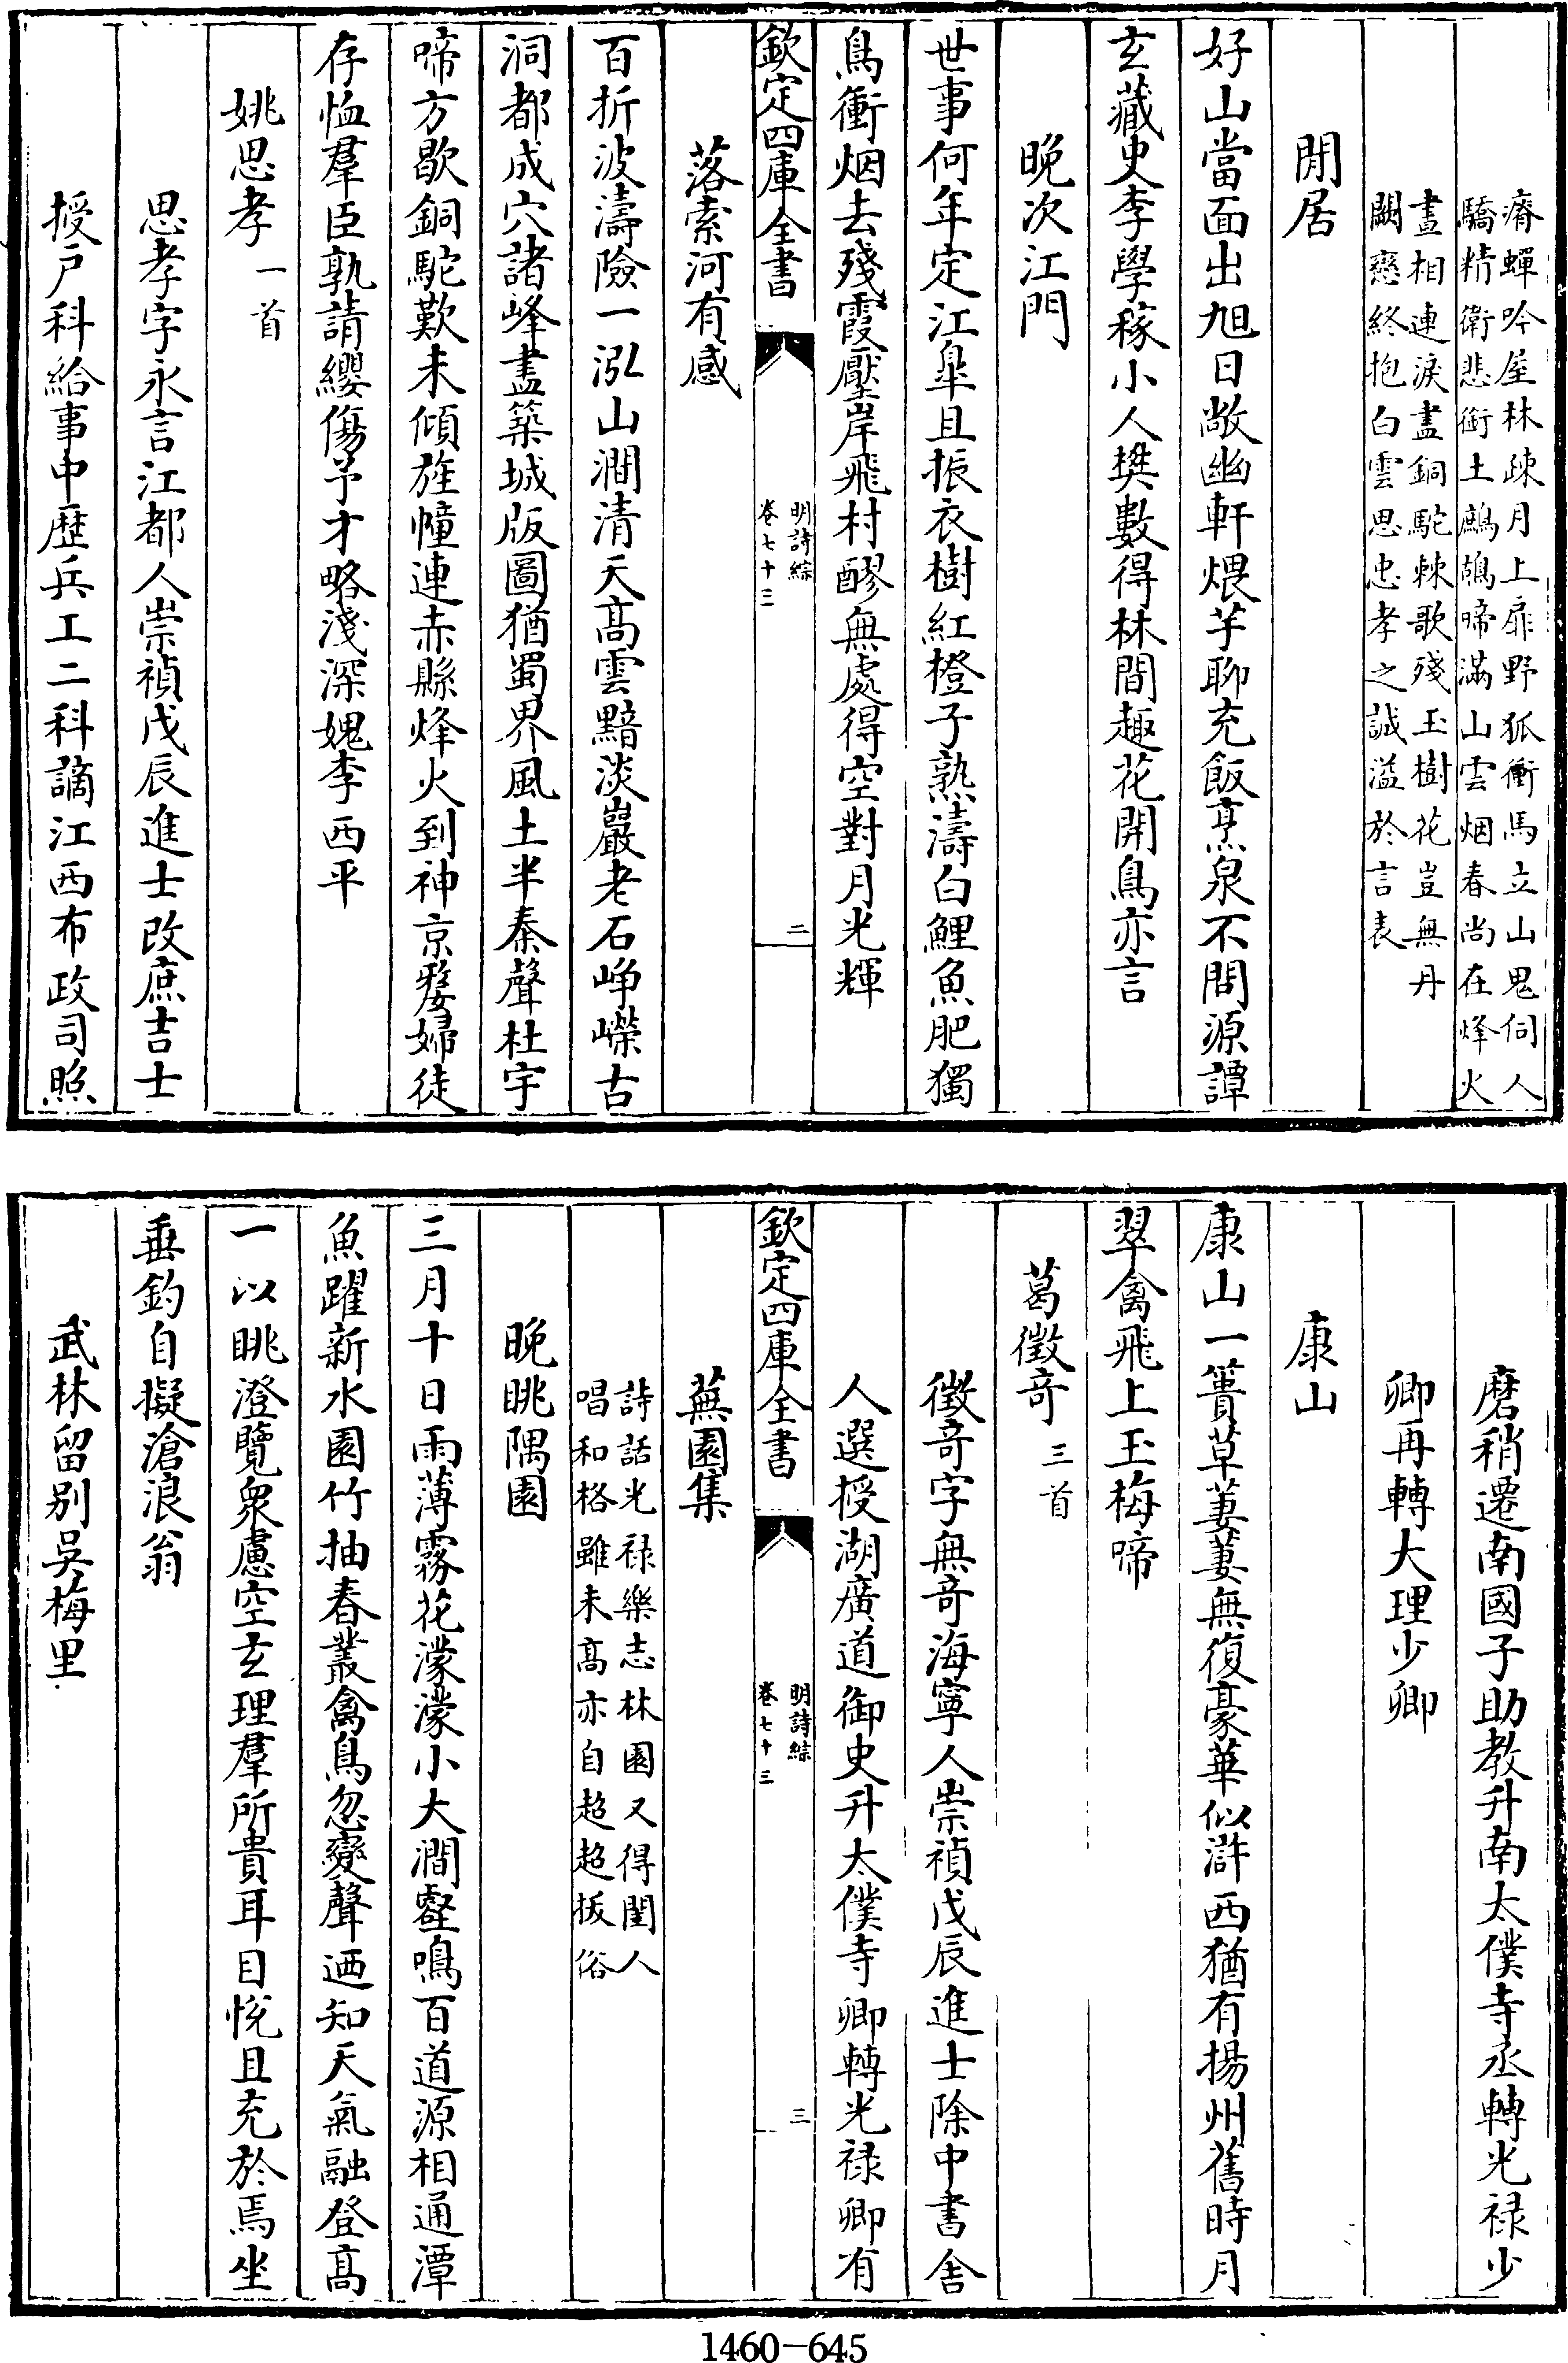 瘠蟬吟屋林疎月上扉野狐衝馬立山鬼伺人
驕精衛悲銜土鷓鴣啼滿山雲烟春尚在烽火
晝相連淚盡銅駝棘歌殘玉樹花豈無丹
闕戀終抱白雲思忠孝之誠溢於言表
閒居
好山當面出旭日敞幽軒煨芋聊充飯烹泉不問源譚
玄藏史李學稼小人樊數得林間趣花開鳥亦言
晚次江門
世事何年定江臯且振衣樹紅橙子熟濤白鯉魚肥獨
鳥衝烟去殘霞壓岸飛村醪無處得空對月光輝
欽定四庫全書
明詩綜
卷七十三
二
落索河有感
百折波濤險一泓山澗清天高雲黯淡巖老石崢嶸古
洞都成穴諸峰盡築城版圖猶蜀界風土半秦聲杜宇
啼方歇銅駝歎未傾旌幢連赤縣烽火到神京嫠婦徒
存恤羣臣孰請纓傷予才略淺深媿李西平
姚思孝一首
思孝字永言江都人崇禎戊辰進士改庶吉士
授戶科給事中歷兵工二科謫江西布政司照
磨稍遷南國子助教升南太僕寺丞轉光祿少
卿再轉大理少卿
康山
康山一簣草萋萋無復豪華似滸西猶有揚州舊時月
翠禽飛上玉梅啼
葛徵奇三首
徵奇字無奇海寧人崇禎戊辰進士除中書舍
人選授湖廣道御史升太僕寺卿轉光祿卿有
欽定四庫全書
明詩綜
卷七十三
三
蕪園集
詩話光祿樂志林園又得閨人
唱和格雖未高亦自超超拔俗
晚眺隅園
三月十日雨薄霧花濛濛小大澗壑鳴百道源相通潭
魚躍新水園竹抽春叢禽鳥忽變聲迺知天氣融登高
一以眺澄覽衆慮空玄理羣所貴耳目悅且充於焉坐
垂釣自擬滄浪翁
武林留别吳梅里
1460-645